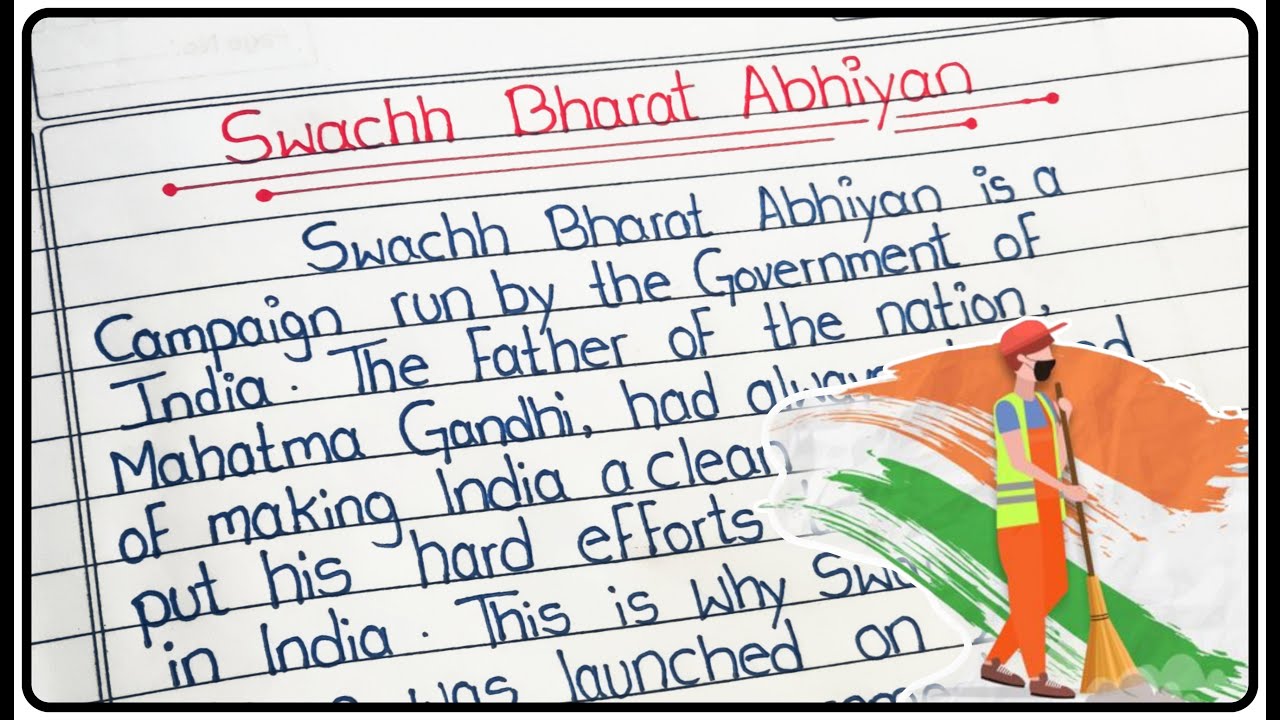 Swachh Bharat Abhiyan
Swachh Bharat Abhiyan is a
Campaign run by the Government of
India. The Father of the nation,
Mahatma Gandhi, had always
of making India a clean
put his hard efforts
in India. This is why
was launched on